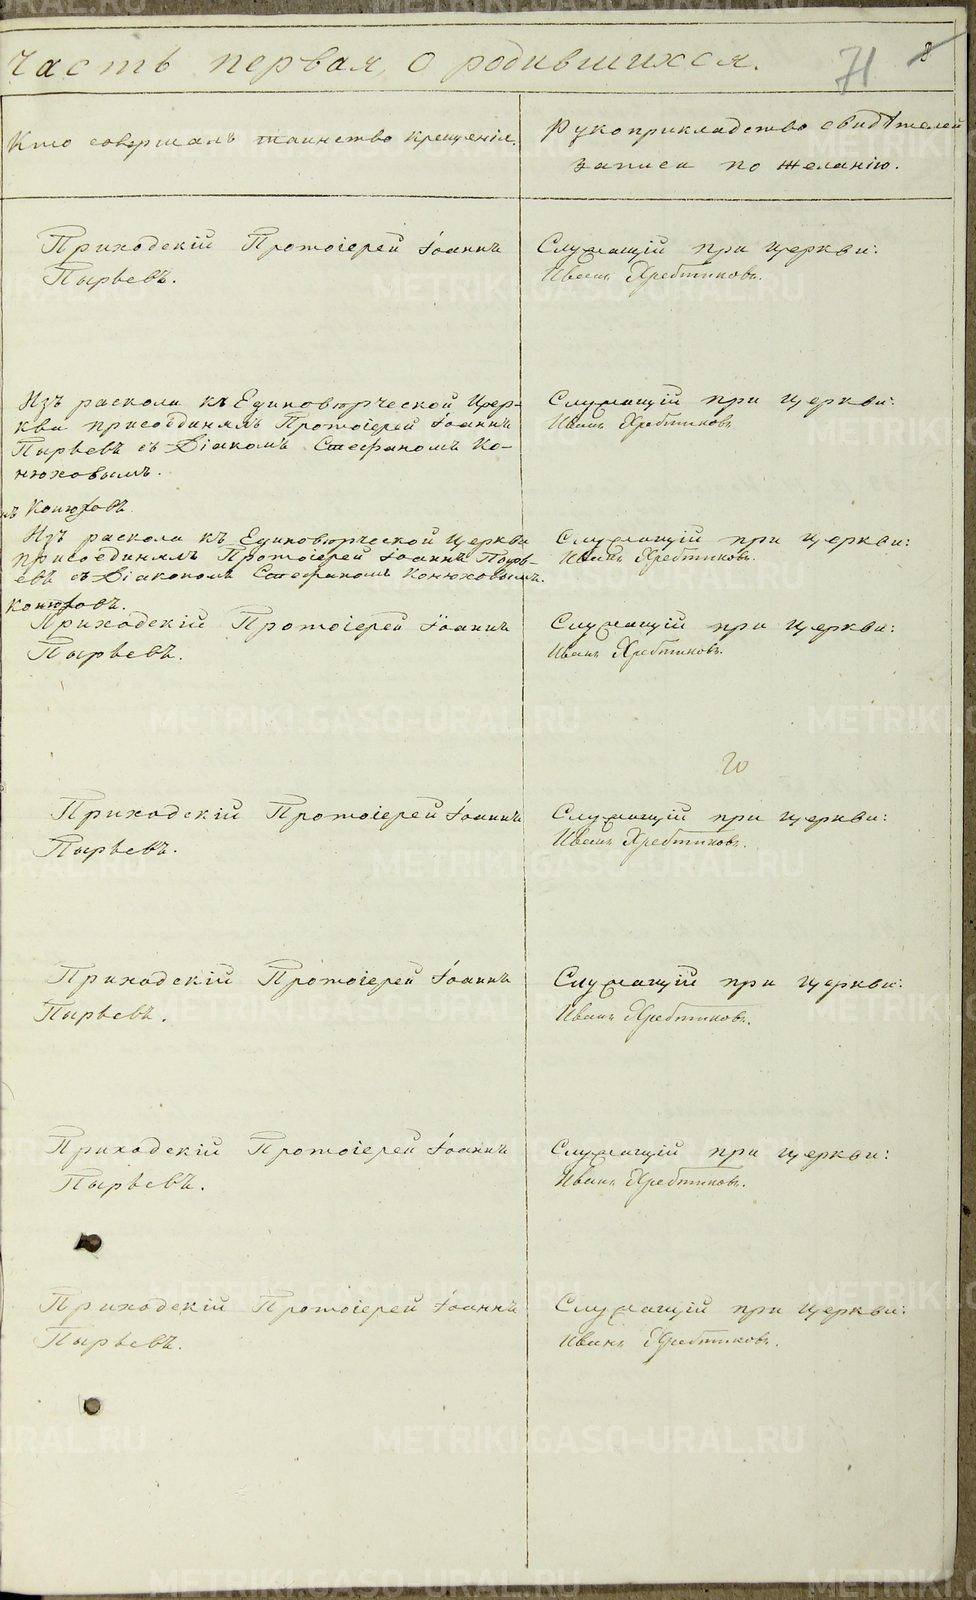 часть первая, о родившихся. 71 8
Кто совершалъ таинство крещенія.
Рукоприкладство свидѣтелей
записи по желанію.
Приходскій Протоіерей Іоаннъ
Пырьевъ.
Служащій при церкви:
Иванъ Хребтиковъ.
Изъ раскола къ Единовѣрческой Цер-
кви присоединялъ Протоіерей Іоаннъ
Пырьевъ съ Діакомъ Стефаномъ Ко-
нюховымъ.
Служащій при церкви:
Иванъ Хребтиковъ
нъ Конюховъ.
Изъ раскола къ Единовѣрческой Церкви
присоединялъ Протоіерей Іоаннъ Пырь-
евъ съ Діакономъ Стефаномъ Конюховымъ.
Служащій при церкви:
Иванъ Хребтиковъ.
Конюховъ.
Приходскій Протоіерей Іоаннъ
Пырьевъ.
Служащій при церкви:
Иванъ Хребтиковъ.
Приходскій Протоіерей Іоаннъ
Пырьевъ.
Служащій при церкви:
Иванъ Хребтиковъ.
Приходскій Протоіерей Іоаннъ
Пырьевъ.
Служащій при церкви:
Иванъ Хребтиковъ.
Приходскій Протоіерей Іоаннъ
Пырьевъ.
Служащій при церкви:
Иванъ Хребтиковъ.
Приходскій Протоіерей Іоаннъ
Пырьевъ.
Служащій при церкви:
Иванъ Хребтиковъ.
METRIKI.GASO-URAL.RU